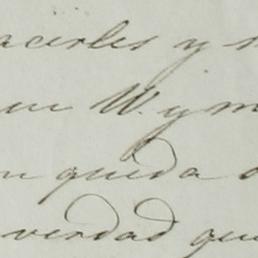 acerles y
W. y m
queda
verdad que